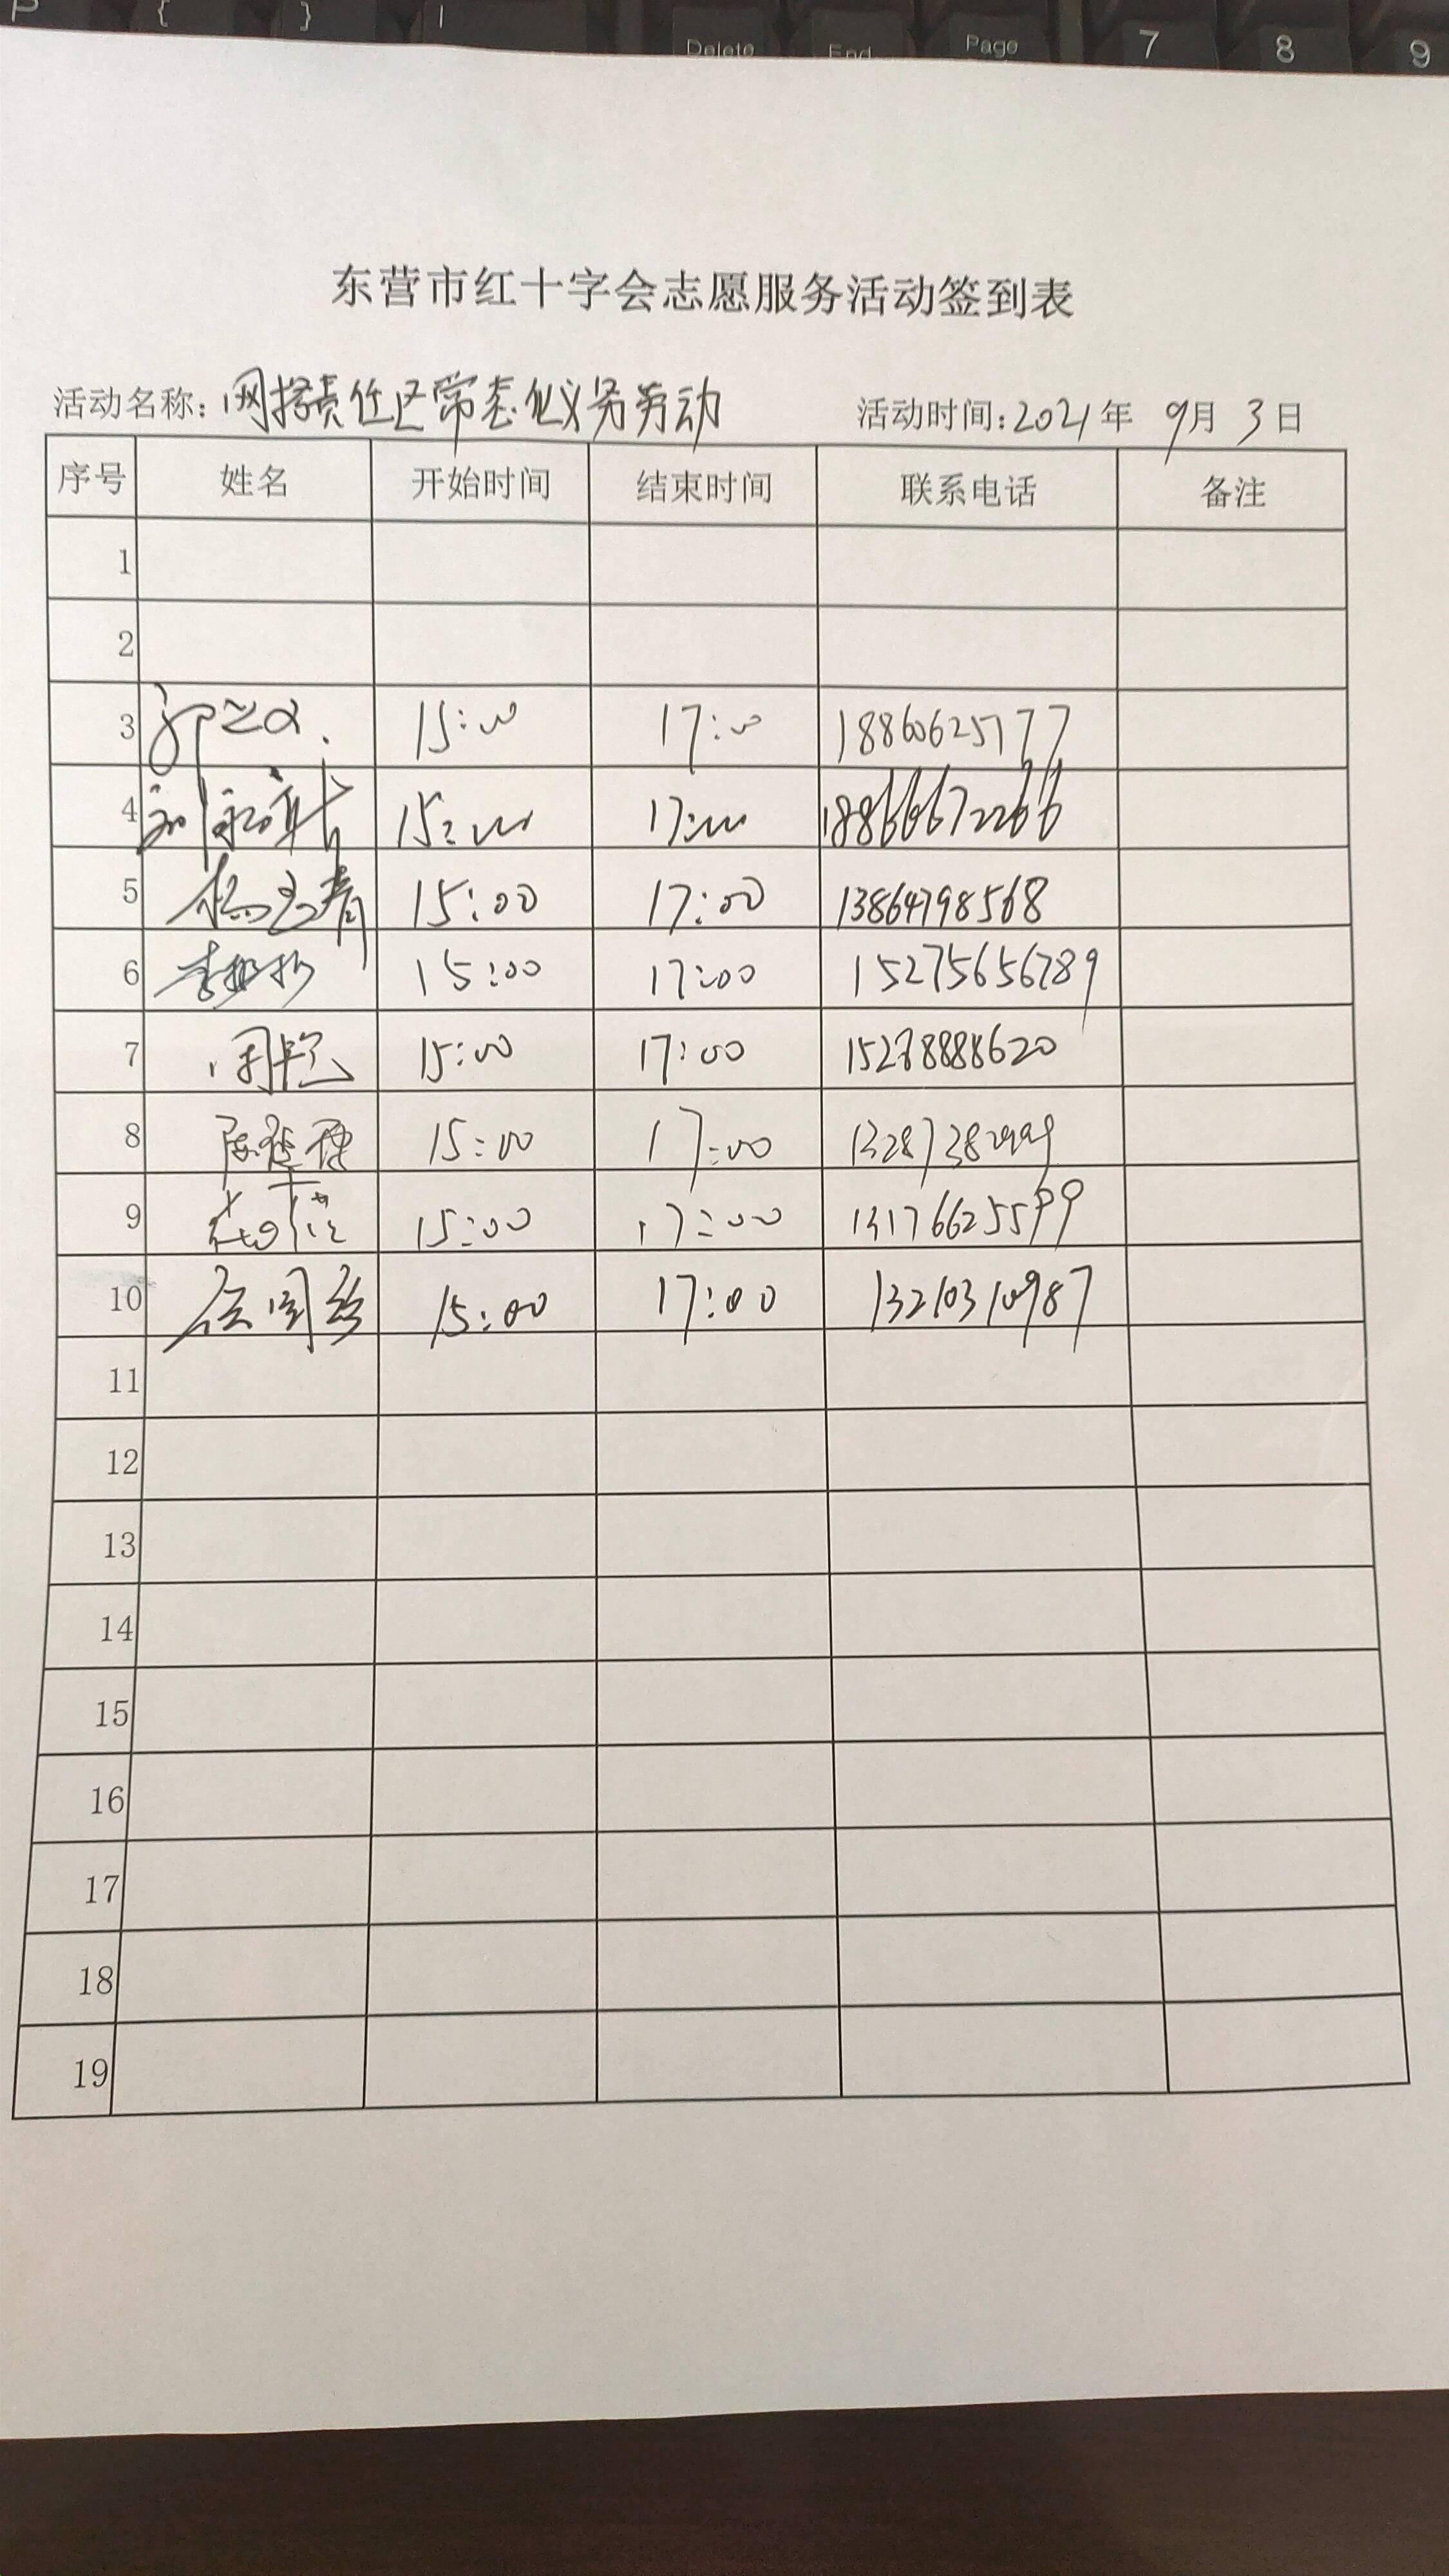 P { } |
Delete End Page 7 8 9
东营市红十字会志愿服务活动签到表
活动名称: 网格责任区常态化义务劳动 活动时间: 2021年 9月 3日
序号 姓名 开始时间 结束时间 联系电话 备注
1
2
3 15:00 17:00 18860625777
4 15:00 17:00 18866672266
5 15:00 17:00 13864798568
6 15:00 17:00 15275656789
7 15:00 17:00
8 陈 15:00 17:00
9 15:00 17:00 13176625599
10 15:00 17:00 13210310987
11
12
13
14
15
16
17
18
19